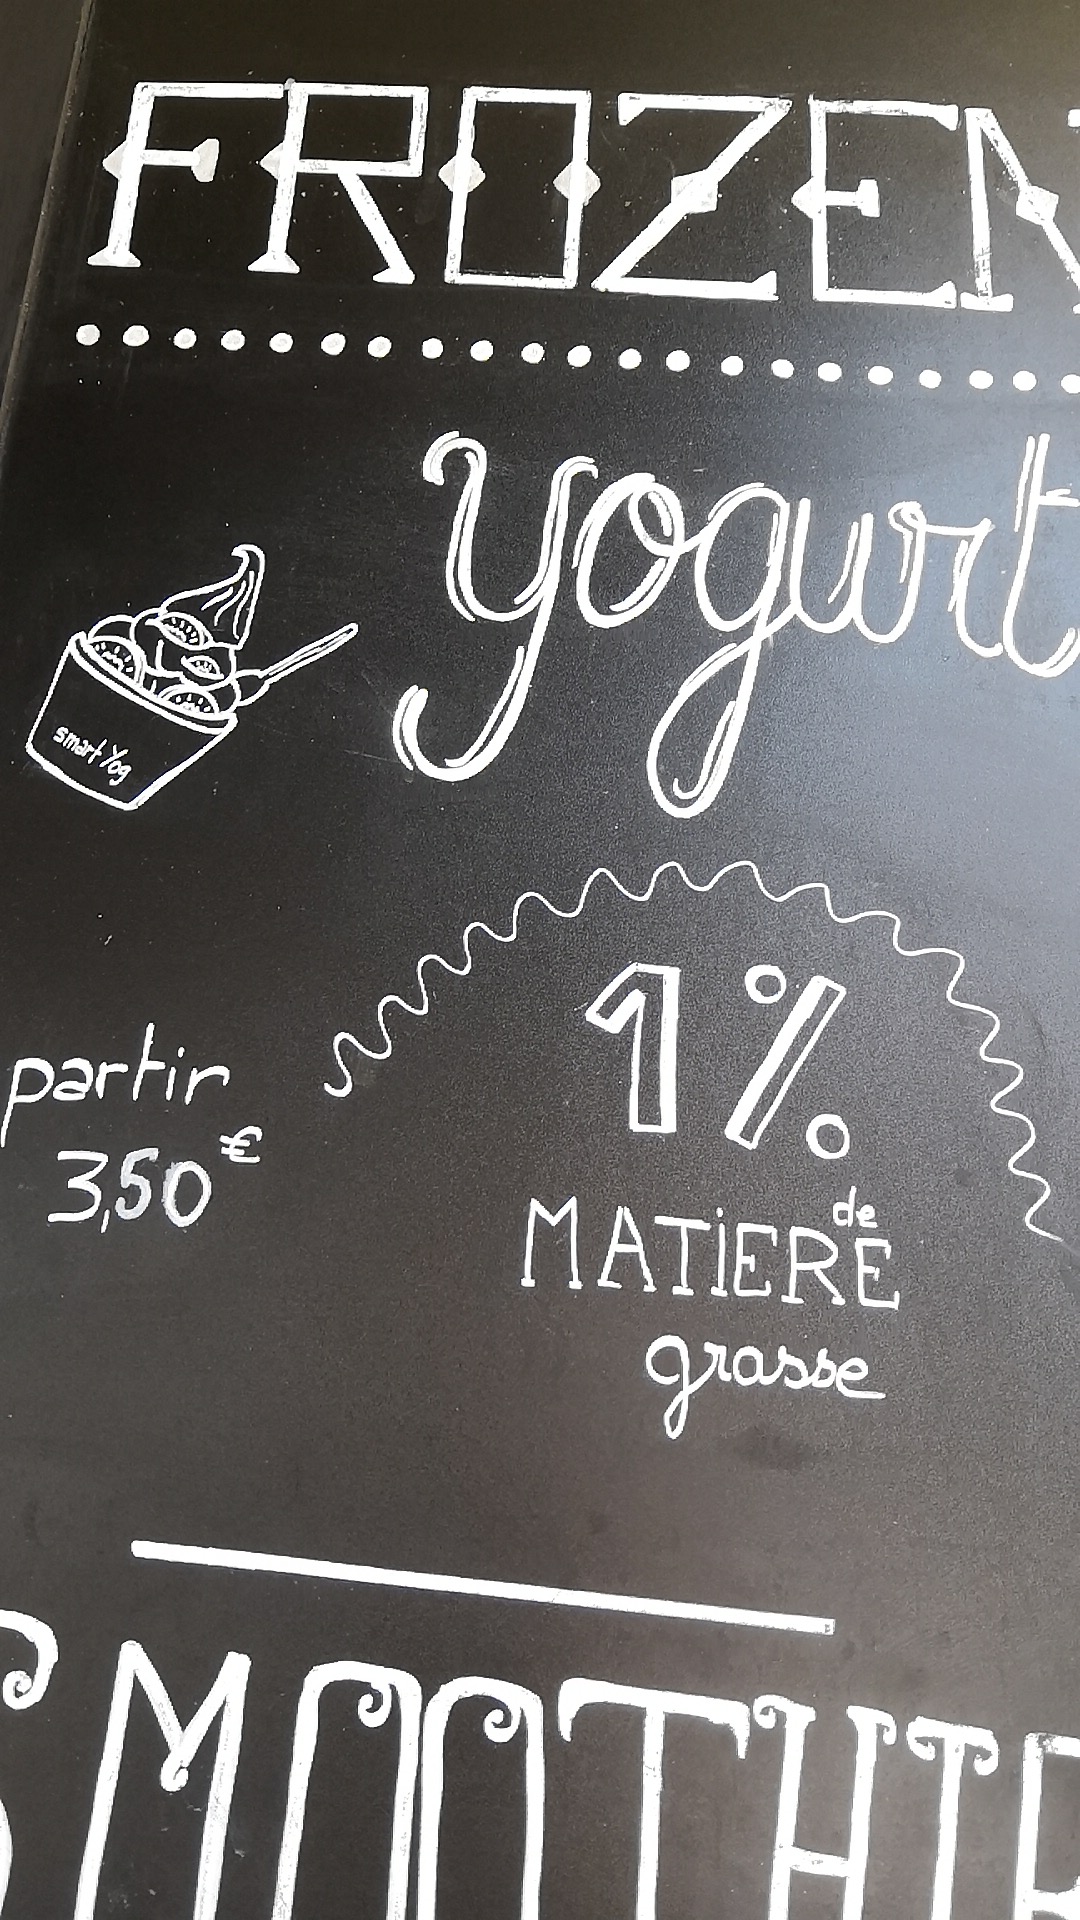 FROZEN
yogurt
smart Yog
1%
partir
3,50€
de
MATIERE
grasse
SMOOTHIE